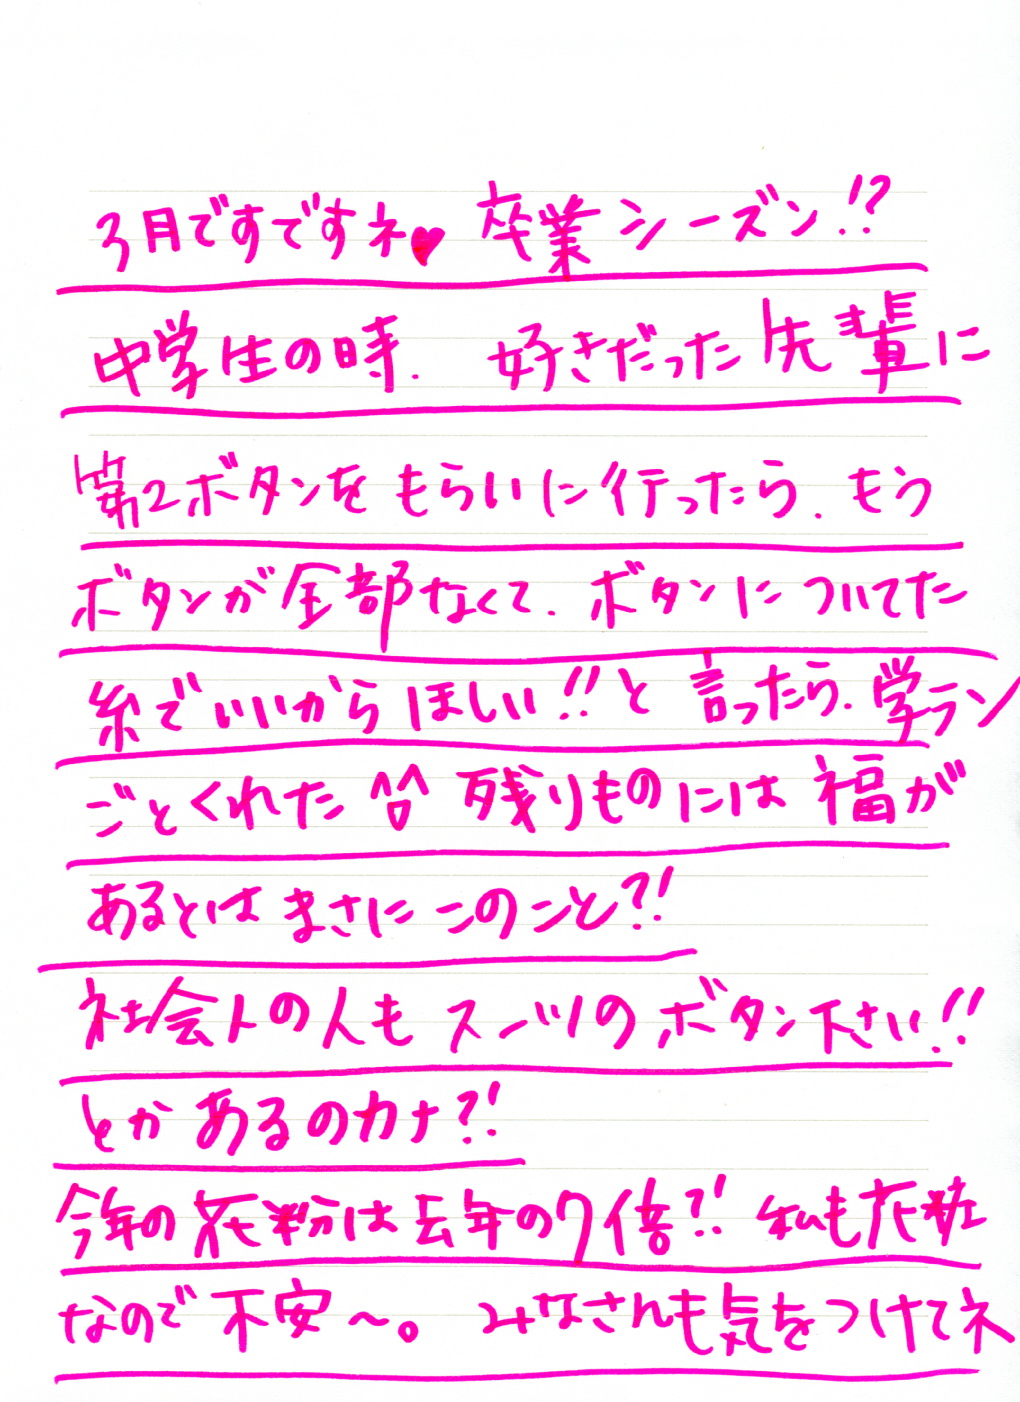 3月ですですネ♥ 卒業シーズン!?
中学生の時. 好きだった先輩に
第2ボタンをもらいに行ったら. もう
ボタンが全部なくて. ボタンについてた
糸でいいからほしい!!と言ったら. 学ラン
ごとくれた^O^ 残りものには福が
あるとはまさにこのこと?!
社会人の人もスーツのボタン下さい!!
とかあるのカナ?!
今年の花粉は去年の7倍?! 私も花粧
なので不安〜。 みなさんも気をつけてネ